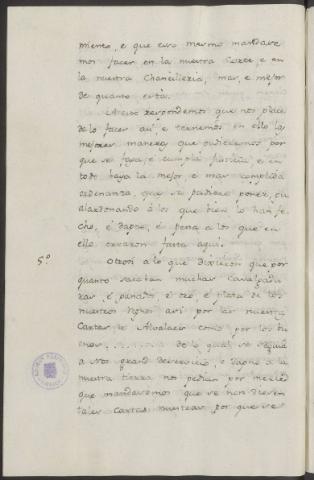 miento, e que eso mesmo mandare
mos facer en la nuestra Corte e en
la nuestra Chancilleria, mas, e mejor
de quanto está.
A esto respondemos que nos place
de lo facer asi, e ternemos en ello las
mejores maneras que pudieremos por
que se faga, é cumpla justicia, e en
todo haya la mejor, e mas complida
ordenanza, que se pudiere poner, Gu
alardonando á los que bien lo han fe
cho, é dapno, é pena á los que en
ello erraron fasta aqui.
5º Otrosi a lo que dixieron que por
quanto sacaban muchas
é panados, é oro, é plata de los
nuestros Regnos asi por las nuestras
Cartas, e Alvalaes como por los
de lo qual se seguia
a Nos grand deservicio, e dapno á la
nuestra tierra nos pedian por merced
que mandasemos que se non diesen
tales Cartas nuestras por que se